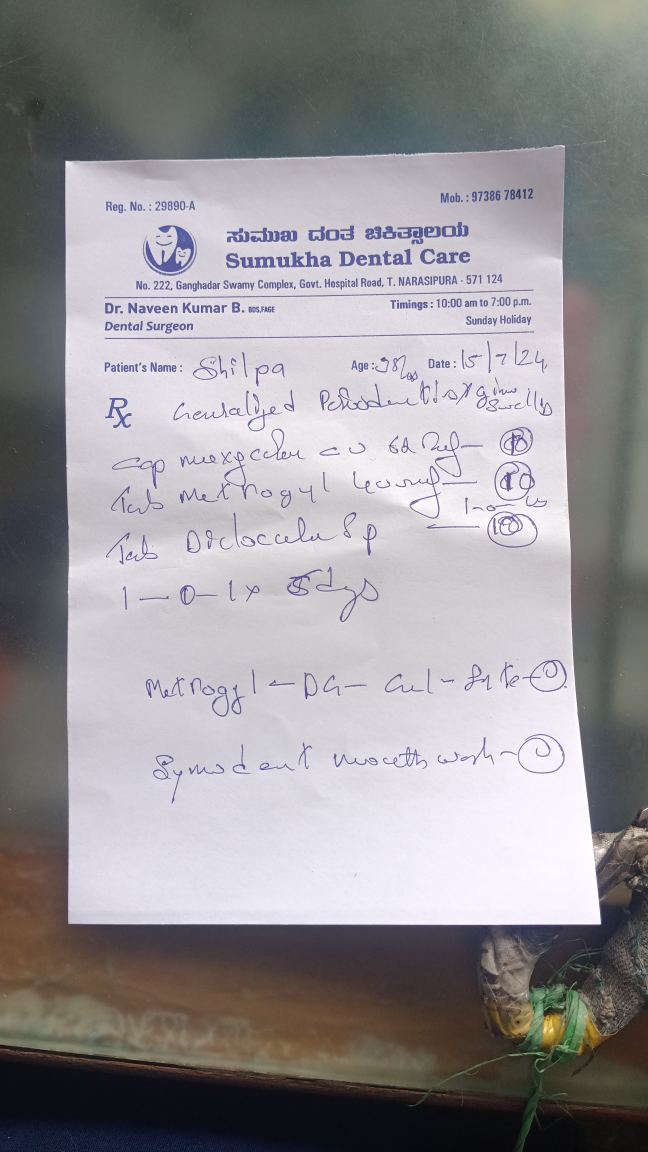 Reg. No. : 29890-A
Mob. : 97386 78412
ಸುಮುಖ ದಂತ ಚಿಕಿತ್ಸಾಲಯ
Sumukha Dental Care
No. 222, Ganghadar Swamy Complex, Govt. Hospital Road, T. NARASIPURA - 571 124
Dr. Naveen Kumar B. BDS,FAGE
Timings : 10:00 am to 7:00 p.m.
Dental Surgeon
Sunday Holiday
Patient's Name : Shilpa Age : Date : 15/7/24
Rx Generalized
cap
Tab Metrogyl 400mg - 10
1-0-1
Tab 10
1-0-1 x 5 dys
Metrogyl - DG - Gel -
mouth wash - 1